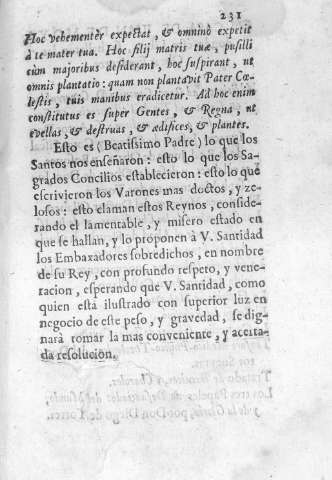 231
Hoc vehementèr expectat, & omninò expetit
à te mater tua. Hoc filij matris tuæ, pusilli
cùm majoribus desiderant, hoc suspirant, ut
omnis plantatio: quam non plantavit Pater Cœ-
lestis, tuis manibus eradicetur. Ad hoc enim
constitutus es super Gentes, & Regna, ut
evellas, & destruas, & ædifices, & plantes.
Esto es (Beatissimo Padre) lo que los
Santos nos enseñaron: esto lo que los Sa-
grados Concilios establecieron: esto lo què
escrivieron los Varones mas doctos, y ze-
losos: esto claman estos Reynos, conside-
rando el lamentable, y misero estado en
que se hallan, y lo proponen à V. Santidad
los Embaxadores sobredichos, en nombre
de su Rey, con profundo respeto, y vene-
racion, esperando que V. Santidad, como
quien està ilustrado con superior luz en
negocio de este peso, y gravedad, se dig-
narà tomar la mas conveniente, y acerta-
da resolucion.